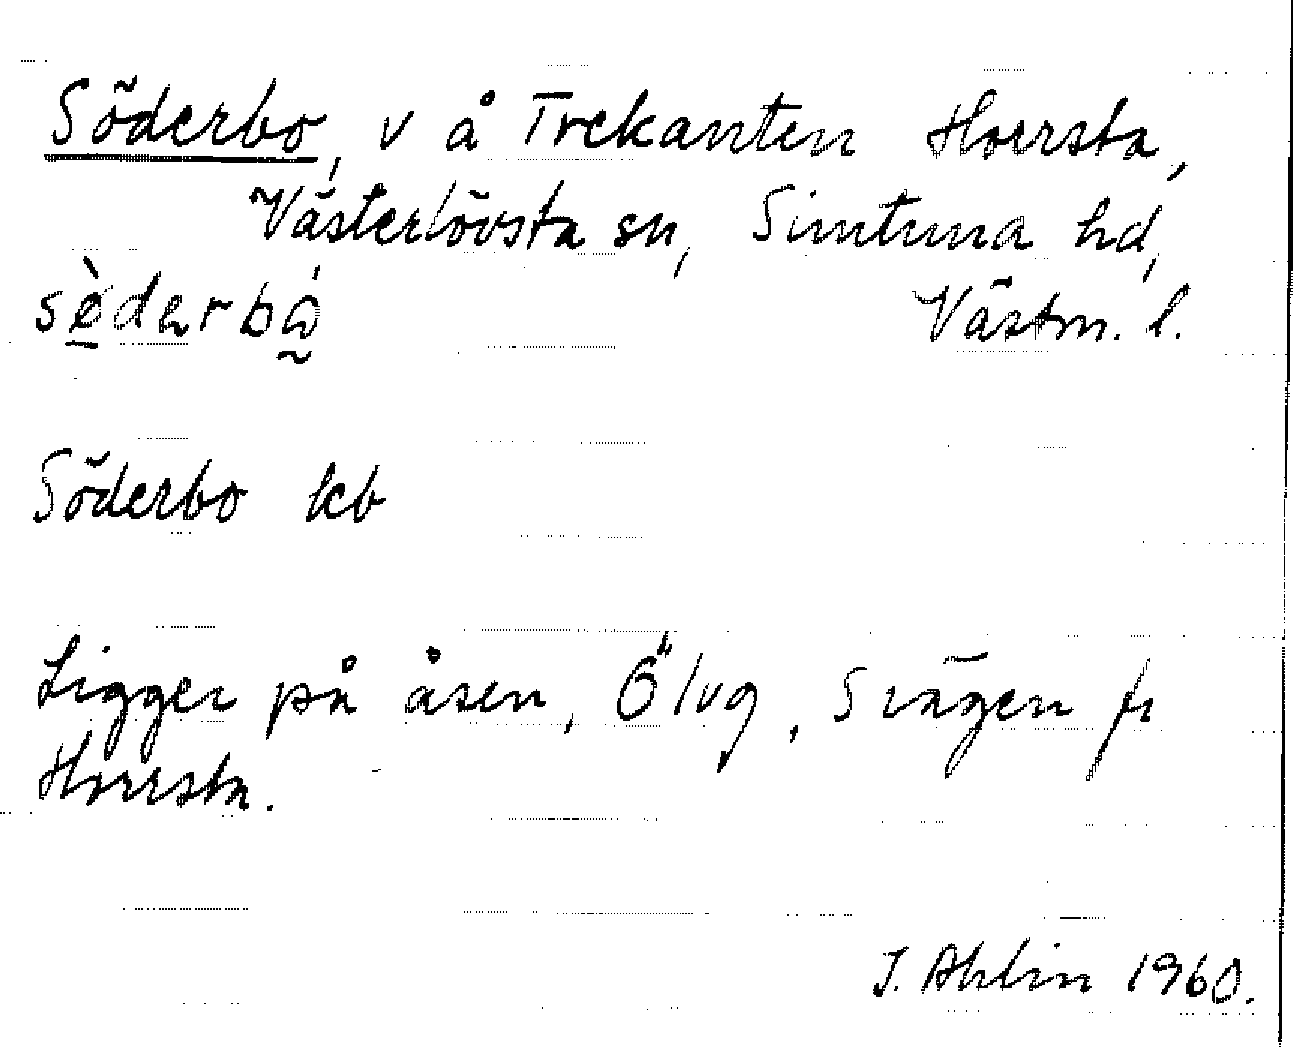 Söderbo, v å Trekanten Horrsta,
Västerlövsta sn, Simtuna hd,
Västm. l.
Söderbo kb
Ligger på åsen, Ö lvg, S vägen fr
Horrsta.
J. Ahlin 1960.